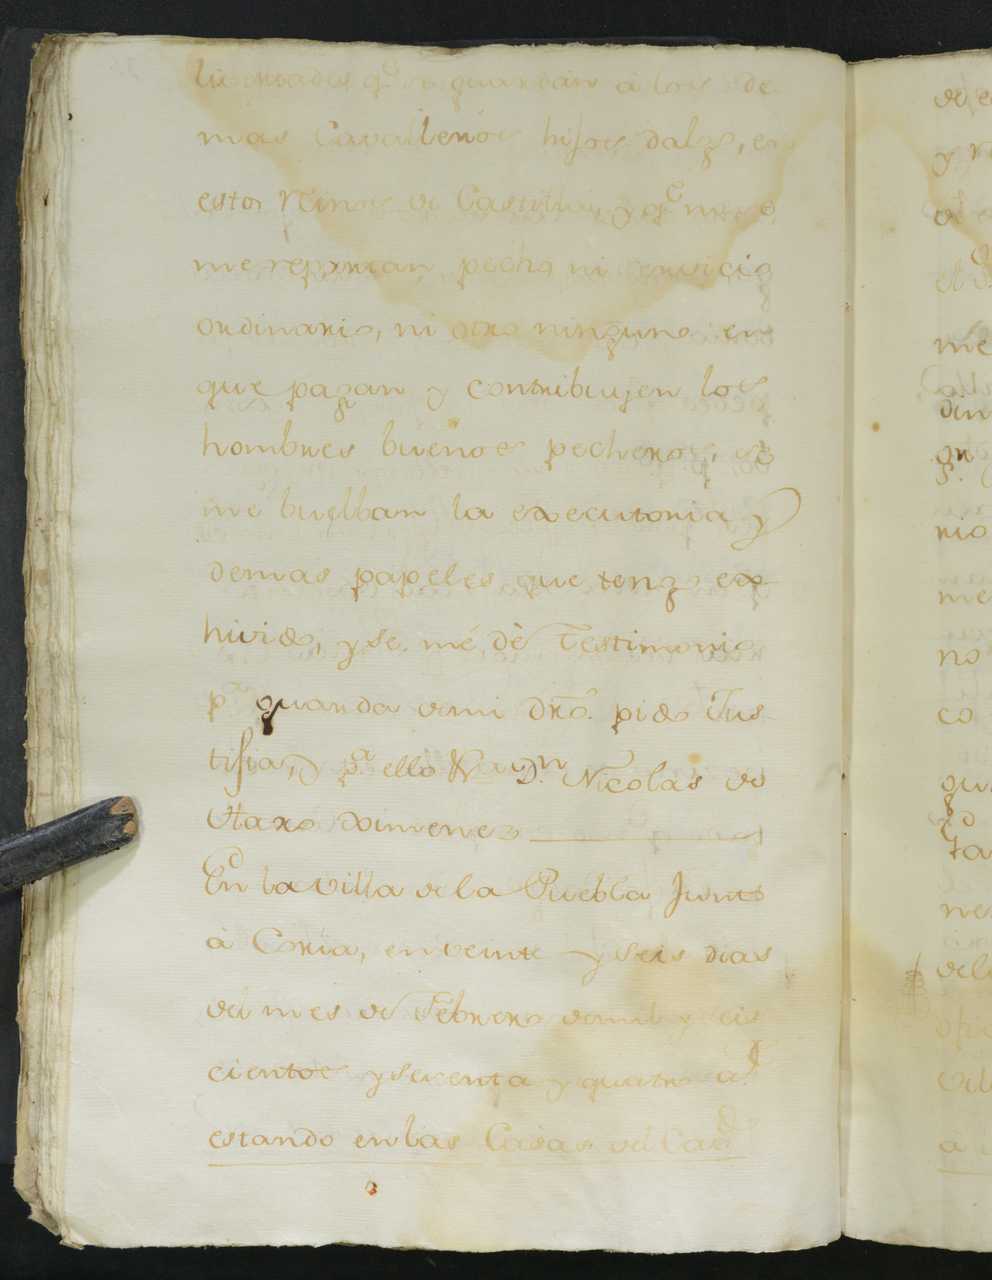 livertades q.e se guardan à los de
mas Cavalleros hijos dalg, en
estos Reinos de Castilla, y q.e no se
me repartan pecho ni servicio
ordinario, ni otro ninguno en
que pagan y contribuyen los
hombres buenos pecheros, se
me buelban la executoria y
demas papeles que tengo ex
hivido, y se mé dè Testimonio
p.a guarda de mi dro. pido Jus
tisia, p.a ello D.n Nicolas de
Haro Ximenez
En la Villa de la Puebla Junto
à Coria, en veinte y seis dias
del mes de Febrero de mil y seis
cientos y sesenta y quatro a.s
estando en las Casas del Cav.do
de
y
me
rio
me
no
co
ne
del
ofi